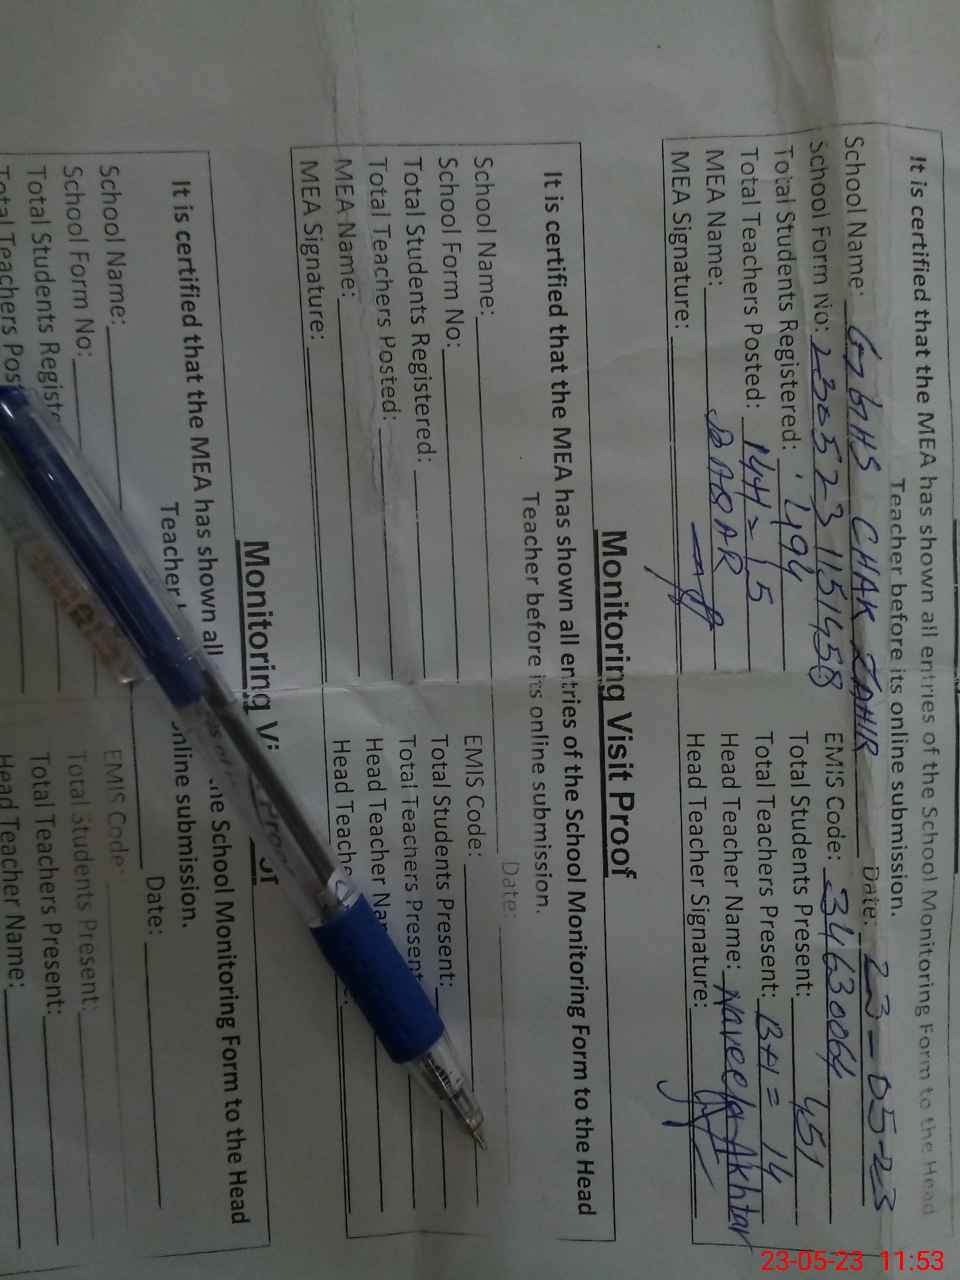 It is certified that the MEA has shown all entries of the School Monitoring Form to the Head
Teacher before its online submission.
School Name: GGHS CHAK ZAHIR Date: 23-05-23
School Form No: 2305231151458 EMIS Code: 34630064
Total Students Registered: 494 Total Students Present: 451
Total Teachers Posted: 14+1=15 Total Teachers Present: 13+1=14
MEA Name: BABAR Head Teacher Name: Naveela Akhtar
MEA Signature: Head Teacher Signature:
Monitoring Visit Proof
It is certified that the MEA has shown all entries of the School Monitoring Form to the Head
Teacher before its online submission.
School Name: Date:
School Form No: EMIS Code:
Total Students Registered: Total Students Present:
Total Teachers Posted: Total Teachers Present
MEA Name: Head Teacher Nam
MEA Signature: Head Teache
Monitoring Vi of
It is certified that the MEA has shown all he School Monitoring Form to the Head
Teacher online submission.
School Name: Date:
School Form No: EMIS Code:
Total Students Registe Total Students Present:
Total Teachers Pos Total Teachers Present:
Head Teacher Name:
23-05-23 11:53